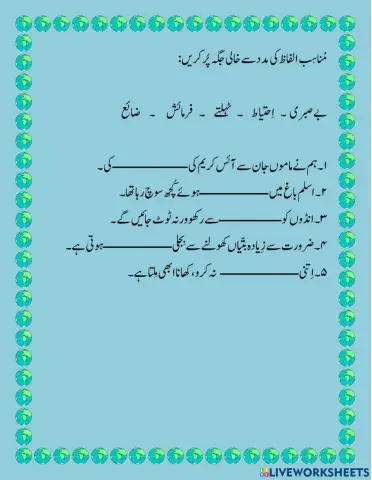 مُناسِب الفاظ کی مدد سے خالی جگہ پُر کریں:
بے صبری ۔ اِحتیاط ۔ ٹہلتے ۔ فرمائش ۔ ضائع
۱۔ ہم نے ماموں جان سے آئس کریم کی ________ کی۔
۲۔ اسلم باغ میں ________ ہوئے کُچھ سوچ رہا تھا۔
۳۔ انڈوں کو ________ سے رکھو ورنہ ٹوٹ جائیں گے۔
۴۔ ضرورت سے زیادہ بتّیاں کھولنے سے بجلی ________ ہوتی ہے۔
۵۔ اِتنی ________ نہ کرو، کھانا ابھی ملتا ہے۔
LIVEWORKSHEETS